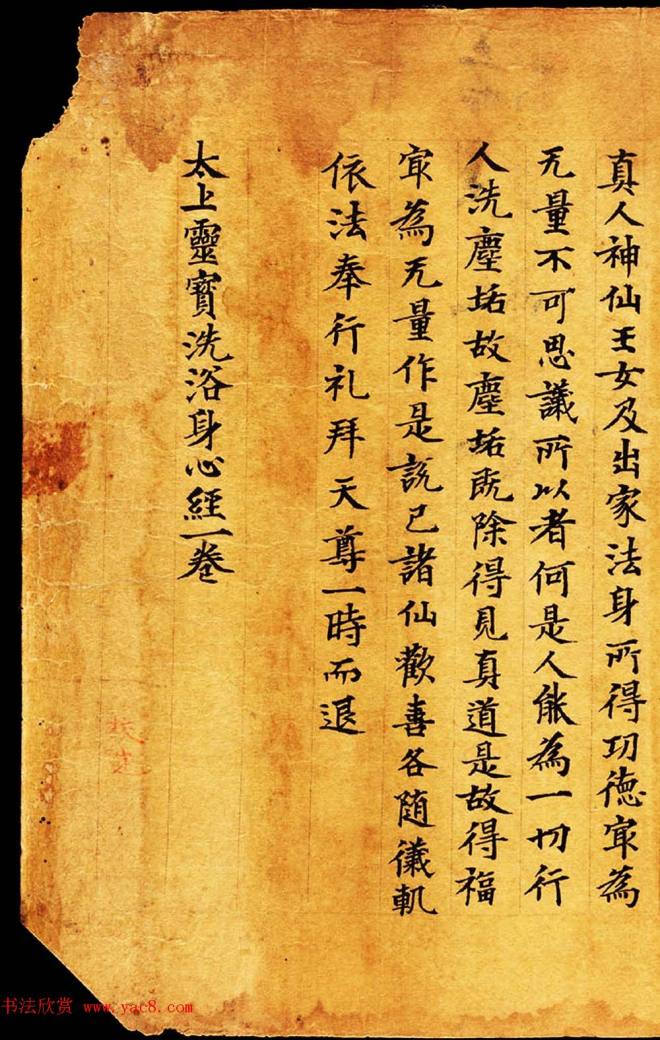 真人神仙玉女及出家法身所得功德㝡為
无量不可思議所以者何是人能為一切行
人洗塵垢故塵垢既除得見真道是故得福
㝡為无量作是說已諸仙歡喜各随儀軌
依法奉行礼拜天尊一時而退
太上靈寶洗浴身心經一卷
书法欣赏 www.yac8.com